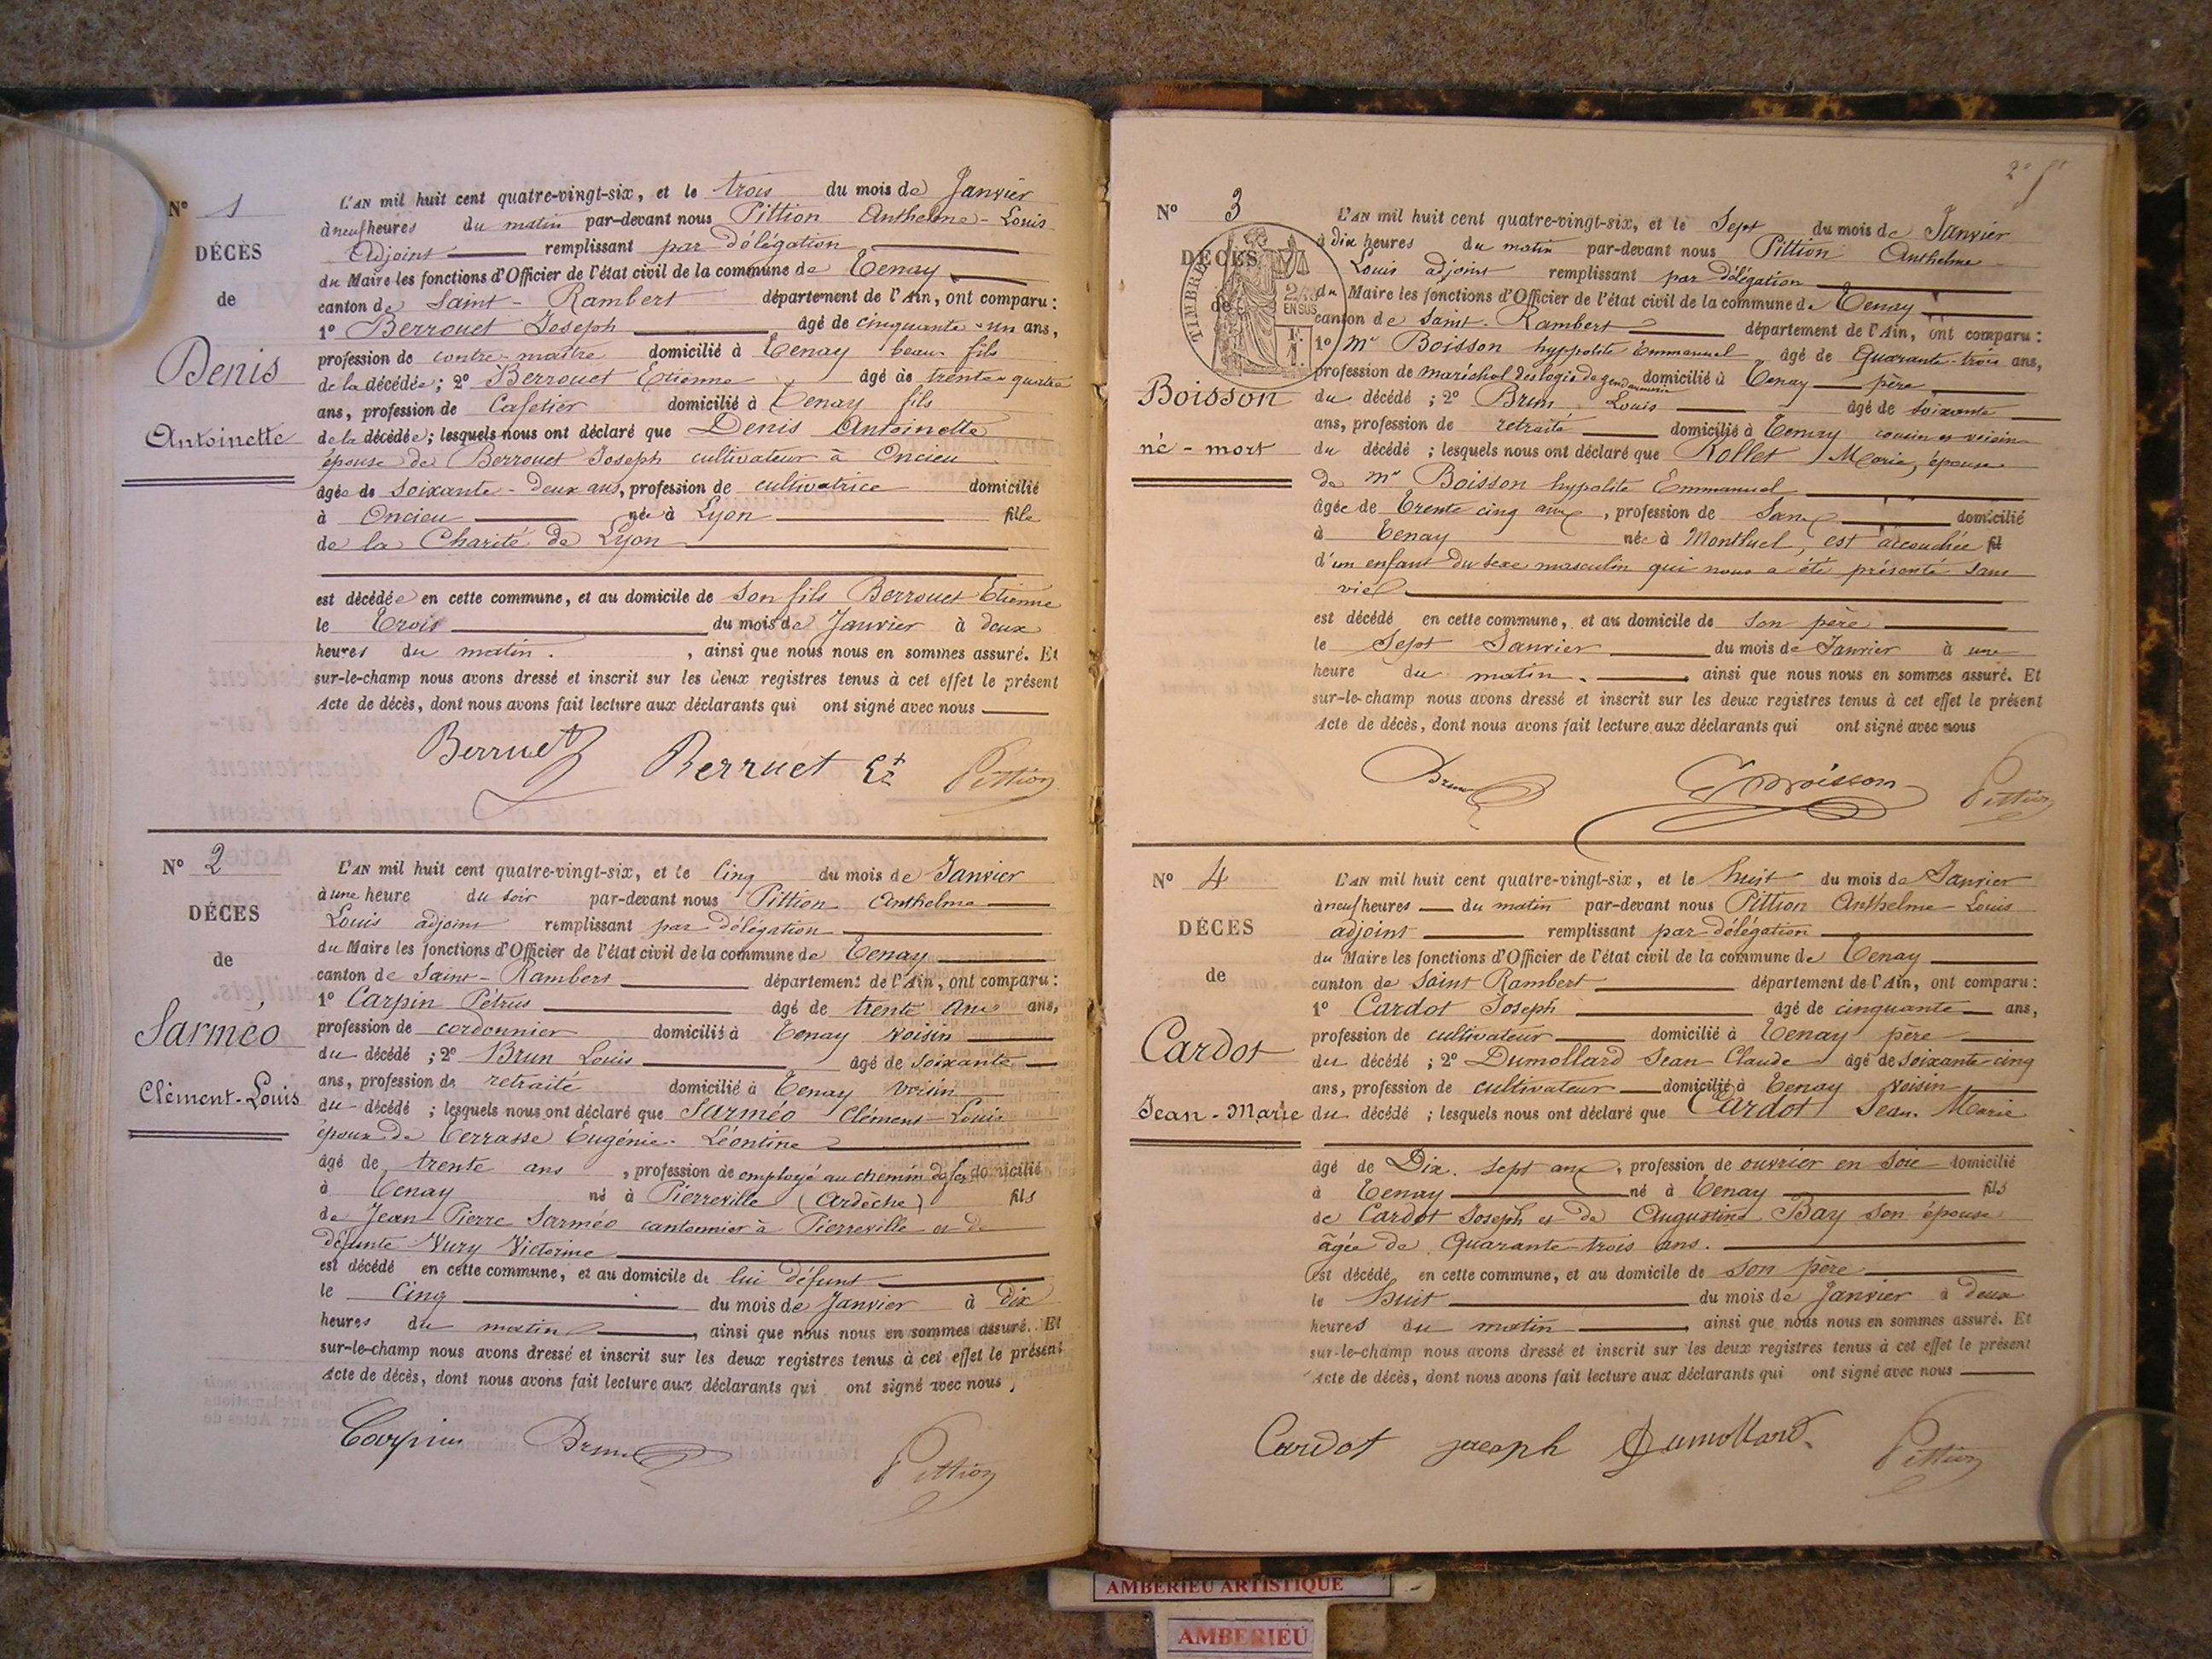 N° 1
DÉCÈS
de
Denis
Antoinette
L'AN mil huit cent quatre-vingt-six, et le trois du mois de Janvier
à neuf heures du matin par-devant nous Pittion Anthelme-Louis
Adjoint remplissant par délégation
du Maire les fonctions d'Officier de l'état civil de la commune de Tenay
canton de Saint-Rambert département de l'Ain, ont comparu :
1° Berrouet Joseph âgé de cinquante-un ans,
profession de contre-maître domicilié à Tenay beau fils
de la décédée ; 2° Berrouet Etienne âgé de trente quatre
ans, profession de Cafetier domicilié à Tenay fils
de la décédée ; lesquels nous ont déclaré que Denis Antoinette
épouse de Berrouet Joseph cultivateur à Oncieu
âgée de soixante-deux ans, profession de cultivatrice domicilié
à Oncieu née à Lyon fille
de la Charité de Lyon
est décédée en cette commune, et au domicile de son fils Berrouet Etienne
le Trois du mois de Janvier à deux
heures du matin. , ainsi que nous nous en sommes assuré. Et
sur-le-champ nous avons dressé et inscrit sur les deux registres tenus à cet effet le présent
Acte de décès, dont nous avons fait lecture aux déclarants qui ont signé avec nous
Berruet Berruet Et Pittion
N° 2
DÉCÈS
de
Sarméo
Clément-Louis
L'AN mil huit cent quatre-vingt-six, et le Cinq du mois de Janvier
à une heure du soir par-devant nous Pittion Anthelme
Louis adjoint remplissant par délégation
du Maire les fonctions d'Officier de l'état civil de la commune de Tenay
canton de Saint-Rambert département de l'Ain, ont comparu :
1° Carpin Pétrus âgé de trente ans ans,
profession de cordonnier domicilié à Tenay voisin
du décédé ; 2° Brun Louis âgé de soixante
ans, profession de retraité domicilié à Tenay voisin
du décédé ; lesquels nous ont déclaré que Sarméo Clément-Louis
époux de Terrasse Eugénie-Léontine
âgé de trente ans , profession de employé au chemin de fer domicilié
à Tenay né à Pierreville (Ardèche) fils
de Jean-Pierre Sarméo cantonnier à Pierreville et de
défunte Vury Victorine
est décédé en cette commune, et au domicile de lui défunt
le Cinq du mois de Janvier à dix
heures du matin , ainsi que nous nous en sommes assuré. Et
sur-le-champ nous avons dressé et inscrit sur les deux registres tenus à cet effet le présent
Acte de décès, dont nous avons fait lecture aux déclarants qui ont signé avec nous,
Carpin Brun Pittion
N° 3
DÉCÈS
de
TIMBRE
2/10 EN SUS
1 F.
Boisson
né-mort
L'AN mil huit cent quatre-vingt-six, et le Sept du mois de Janvier
à dix heures du matin par-devant nous Pittion Anthelme
Louis adjoint remplissant par délégation
du Maire les fonctions d'Officier de l'état civil de la commune de Tenay
canton de Saint-Rambert département de l'Ain, ont comparu :
1° Mr Boisson hyppolite Emmanuel âgé de Quarante-trois ans,
profession de maréchal des logis de gendarmerie domicilié à Tenay père
du décédé ; 2° Brun Louis âgé de soixante
ans, profession de retraité domicilié à Tenay cousin et voisin
du décédé ; lesquels nous ont déclaré que Rollet Marie, épouse
de Mr Boisson hypolite Emmanuel
âgée de Trente cinq ans , profession de Sans domicilié
à Tenay née à Montluel, est accouchée fil
d'un enfant du sexe masculin qui nous a été présenté sans
vie
est décédé en cette commune, et au domicile de son père
le Sept Janvier du mois de Janvier à une
heure du matin. ainsi que nous nous en sommes assuré. Et
sur-le-champ nous avons dressé et inscrit sur les deux registres tenus à cet effet le présent
Acte de décès, dont nous avons fait lecture aux déclarants qui ont signé avec nous
Brun Boisson Pittion
N° 4
DÉCÈS
de
Cardot
Jean-Marie
L'AN mil huit cent quatre-vingt-six, et le huit du mois de Janvier
à neuf heures du matin par-devant nous Pittion Anthelme-Louis
adjoint remplissant par délégation
du Maire les fonctions d'Officier de l'état civil de la commune de Tenay
canton de Saint Rambert département de l'Ain, ont comparu :
1° Cardot Joseph âgé de cinquante ans,
profession de cultivateur domicilié à Tenay père
du décédé ; 2° Dumollard Jean Claude âgé de soixante cinq
ans, profession de cultivateur domicilié à Tenay voisin
du décédé ; lesquels nous ont déclaré que Cardot Jean-Marie
âgé de Dix-sept ans, profession de ouvrier en soie domicilié
à Tenay né à Tenay fils
de Cardot Joseph et de Augustine Bay son épouse
âgée de Quarante-trois ans.
est décédé en cette commune, et au domicile de son père
le huit du mois de Janvier à deux
heures du matin ainsi que nous nous en sommes assuré. Et
sur-le-champ nous avons dressé et inscrit sur les deux registres tenus à cet effet le présent
Acte de décès, dont nous avons fait lecture aux déclarants qui ont signé avec nous
Cardot joseph Dumollard Pittion
AMBERIEU ARTISTIQUE
AMBERIEU